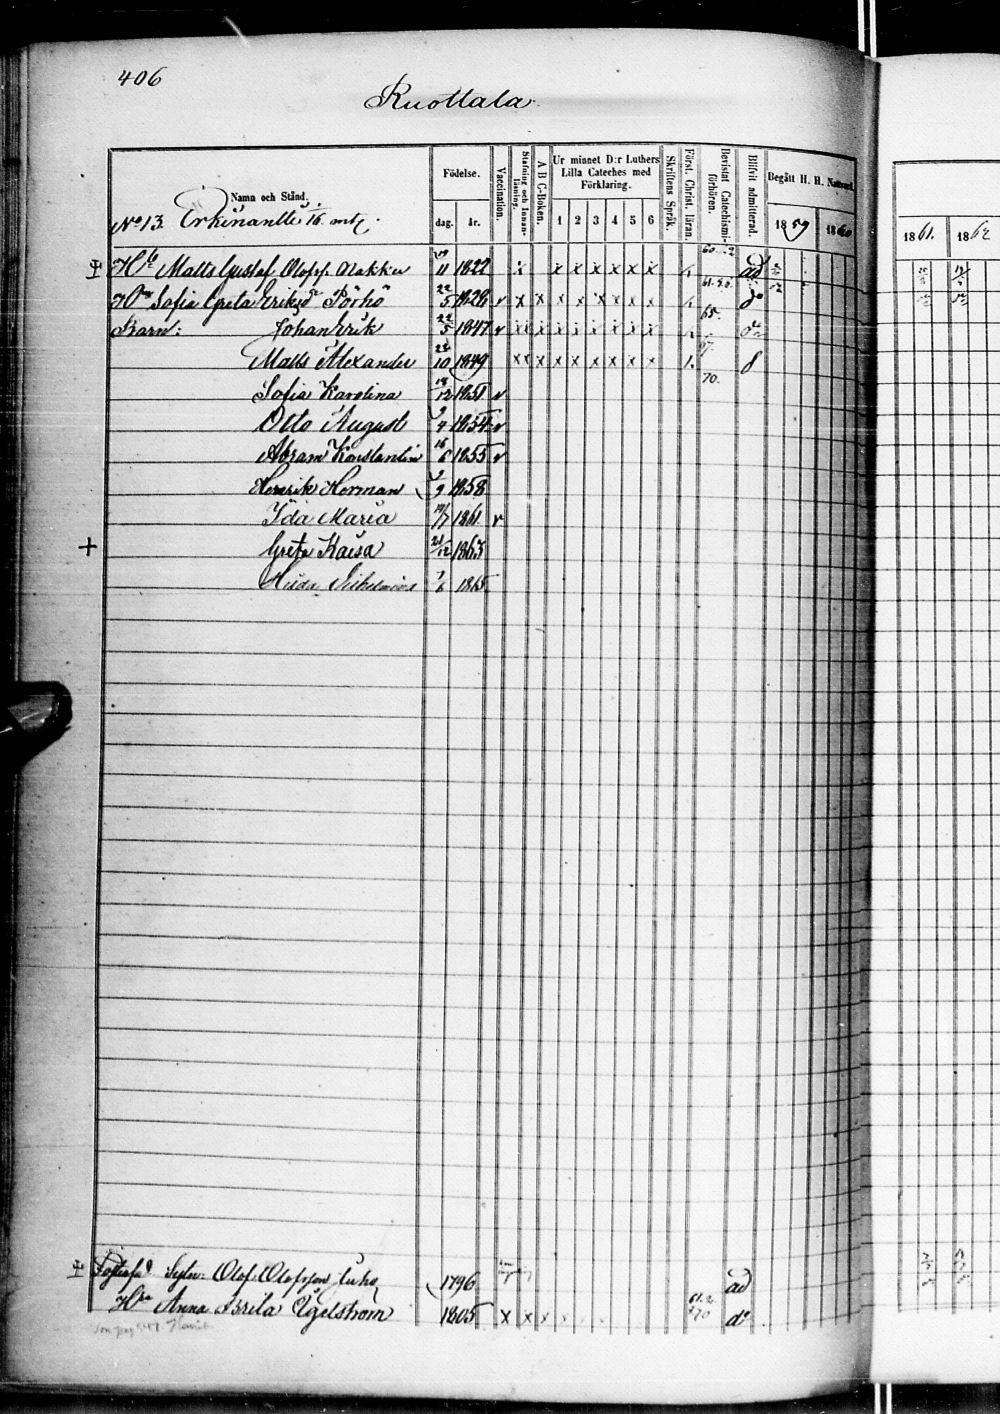 406
Ruottala.
Namn och Stånd.
Födelse.
dag. år.
Vaccination.
Stafning och Innanläsning.
A B C-Boken.
Ur minnet D:r Luthers Lilla Cateches med Förklaring.
1 2 3 4 5 6
Skriftens Språk.
Först. Christ. läran.
Bevistat Catechismiförhören.
Blifvit admitterad.
Begått H. H. Nattvard.
1859 1860 1861. 1862
No 13. Erkinantti 1/16 mtl.
Hb Matts Gustaf Olofss. Makku 11 1822 x x x x x x x ad
Hu Sofia Greta Eriksdr Pörhö 22/5 1826 v x x x x x x x x do
Barn: Johan Erik 22/5 1847 v x x x x x x x x
Matts Alexander 24/10 1849 x x x x x x x x x
Sofia Karolina 18/12 1851 v
Otto August 9/4 1854 v
Abram Konstantin 16/6 1855 v
Henrik Herman 9 1858
Ida Maria 1861 v
+ Greta Kaisa 21/12 1863
Hilda 1/6 1865
Sytn: Olof Olofsson Juho 1796 ad
Hu Anna Brita Ågelström 1805 x x x x do